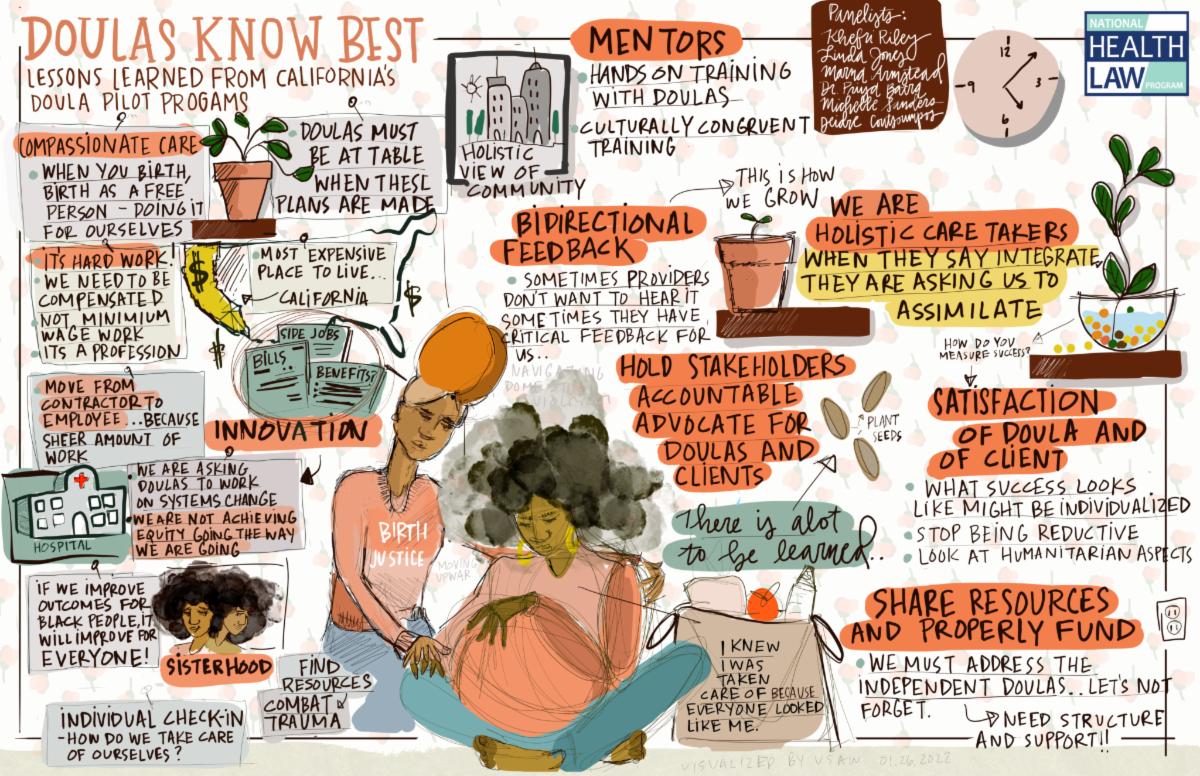 DOULAS KNOW BEST
LESSONS LEARNED FROM CALIFORNIA'S
DOULA PILOT PROGAMS
COMPASSIONATE CARE
WHEN YOU BIRTH,
BIRTH AS A FREE
PERSON - DOING IT
FOR OURSELVES
DOULAS MUST
BE AT TABLE
WHEN THESE
PLANS ARE MADE
IT'S HARD WORK!
WE NEED TO BE
COMPENSATED
NOT MINIMUM
WAGE WORK
ITS A PROFESSION
$
$
MOST EXPENSIVE
PLACE TO LIVE...
CALIFORNIA
$
SIDE JOBS
BILLS
BENEFITS?
MOVE FROM
CONTRACTOR TO
EMPLOYEE...BECAUSE
SHEER AMOUNT OF
WORK
INNOVATION
HOSPITAL
WE ARE ASKING
DOULAS TO WORK
ON SYSTEMS CHANGE
WE ARE NOT ACHIEVING
EQUITY GOING THE WAY
WE ARE GOING
IF WE IMPROVE
OUTCOMES FOR
BLACK PEOPLE, IT
WILL IMPROVE FOR
EVERYONE!
SISTERHOOD
FIND
RESOURCES
COMBAT
TRAUMA
INDIVIDUAL CHECK-IN
-HOW DO WE TAKE CARE
OF OURSELVES?
HOLISTIC
VIEW OF
COMMUNITY
MENTORS
HANDS ON TRAINING
WITH DOULAS
CULTURALLY CONGRUENT
TRAINING
THIS IS HOW
WE GROW
BIDIRECTIONAL
FEEDBACK
SOMETIMES PROVIDERS
DON'T WANT TO HEAR IT
SOMETIMES THEY HAVE
CRITICAL FEEDBACK FOR
US..
NAVIGATING
BIRTH
JUSTICE
MOVING
UPWAR
HOLD STAKEHOLDERS
ACCOUNTABLE
ADVOCATE FOR
DOULAS AND
CLIENTS
PLANT
SEEDS
There is alot
to be learned..
I KNEW
I WAS
TAKEN
CARE OF BECAUSE
EVERYONE LOOKED
LIKE ME.
Panelists:
Khefri Riley
Linda Jones
Marna Armstead
Michelle Sanders
12
3
6
9
NATIONAL
HEALTH
LAW
PROGRAM
WE ARE
HOLISTIC CARE TAKERS
WHEN THEY SAY INTEGRATE,
THEY ARE ASKING US TO
ASSIMILATE
HOW DO YOU
MEASURE SUCCESS?
SATISFACTION
OF DOULA AND
OF CLIENT
WHAT SUCCESS LOOKS
LIKE MIGHT BE INDIVIDUALIZED
STOP BEING REDUCTIVE
LOOK AT HUMANITARIAN ASPECTS
SHARE RESOURCES
AND PROPERLY FUND
WE MUST ADDRESS THE
INDEPENDENT DOULAS.. LET'S NOT
FORGET.
NEED STRUCTURE
AND SUPPORT!!
VISUALIZED BY VSAW 01.26.2022